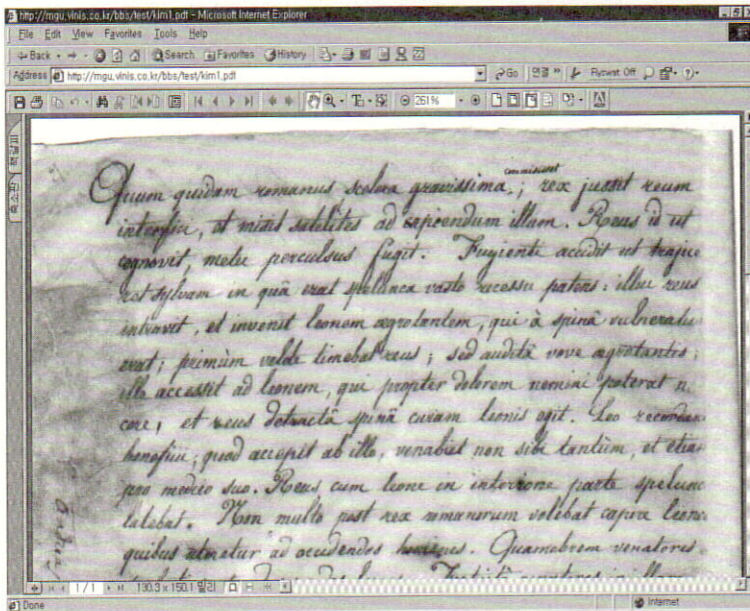 http://mgu.vinis.co.kr/bbs/test/kim1.pdf - Microsoft Internet Explorer
File Edit View Favorites Tools Help
Back Search Favorites History
Address http://mgu.vinis.co.kr/bbs/test/kim1.pdf Go 연결 Flyswat Off
261%
commisisset
Quum quidam romanus scelera gravissima; rex jussit reum
interfici, et misit satelites ad capiendum illum. Reus id ut
cognovit, metu perculsus fugit. Fugienti accidit ut trajice
ret sylvam in quâ erat spelunca vasto recessu patens: illuc reus
intravit, et invenit leonem ægrotantem, qui à spinâ vulneratus
erat; primùm valde timebat reus; sed auditâ voce ægrotantis,
illo accessit ad leonem, qui propter dolorem nemini poterat n.
cere, et reus detractâ spinâ curam leonis egit. Leo recordan
beneficii, quod accepit ab illo, venabat non sibi tantùm, et etiam
pro medico suo. Reus cum leone in interiore parte spelunc
latebat. Non multo post rex romanorum volebat capere leone
quibus uteretur ad occidendos homines. Quamobrem venatores
1/1 130.3 x 150.1 밀리
Done Internet